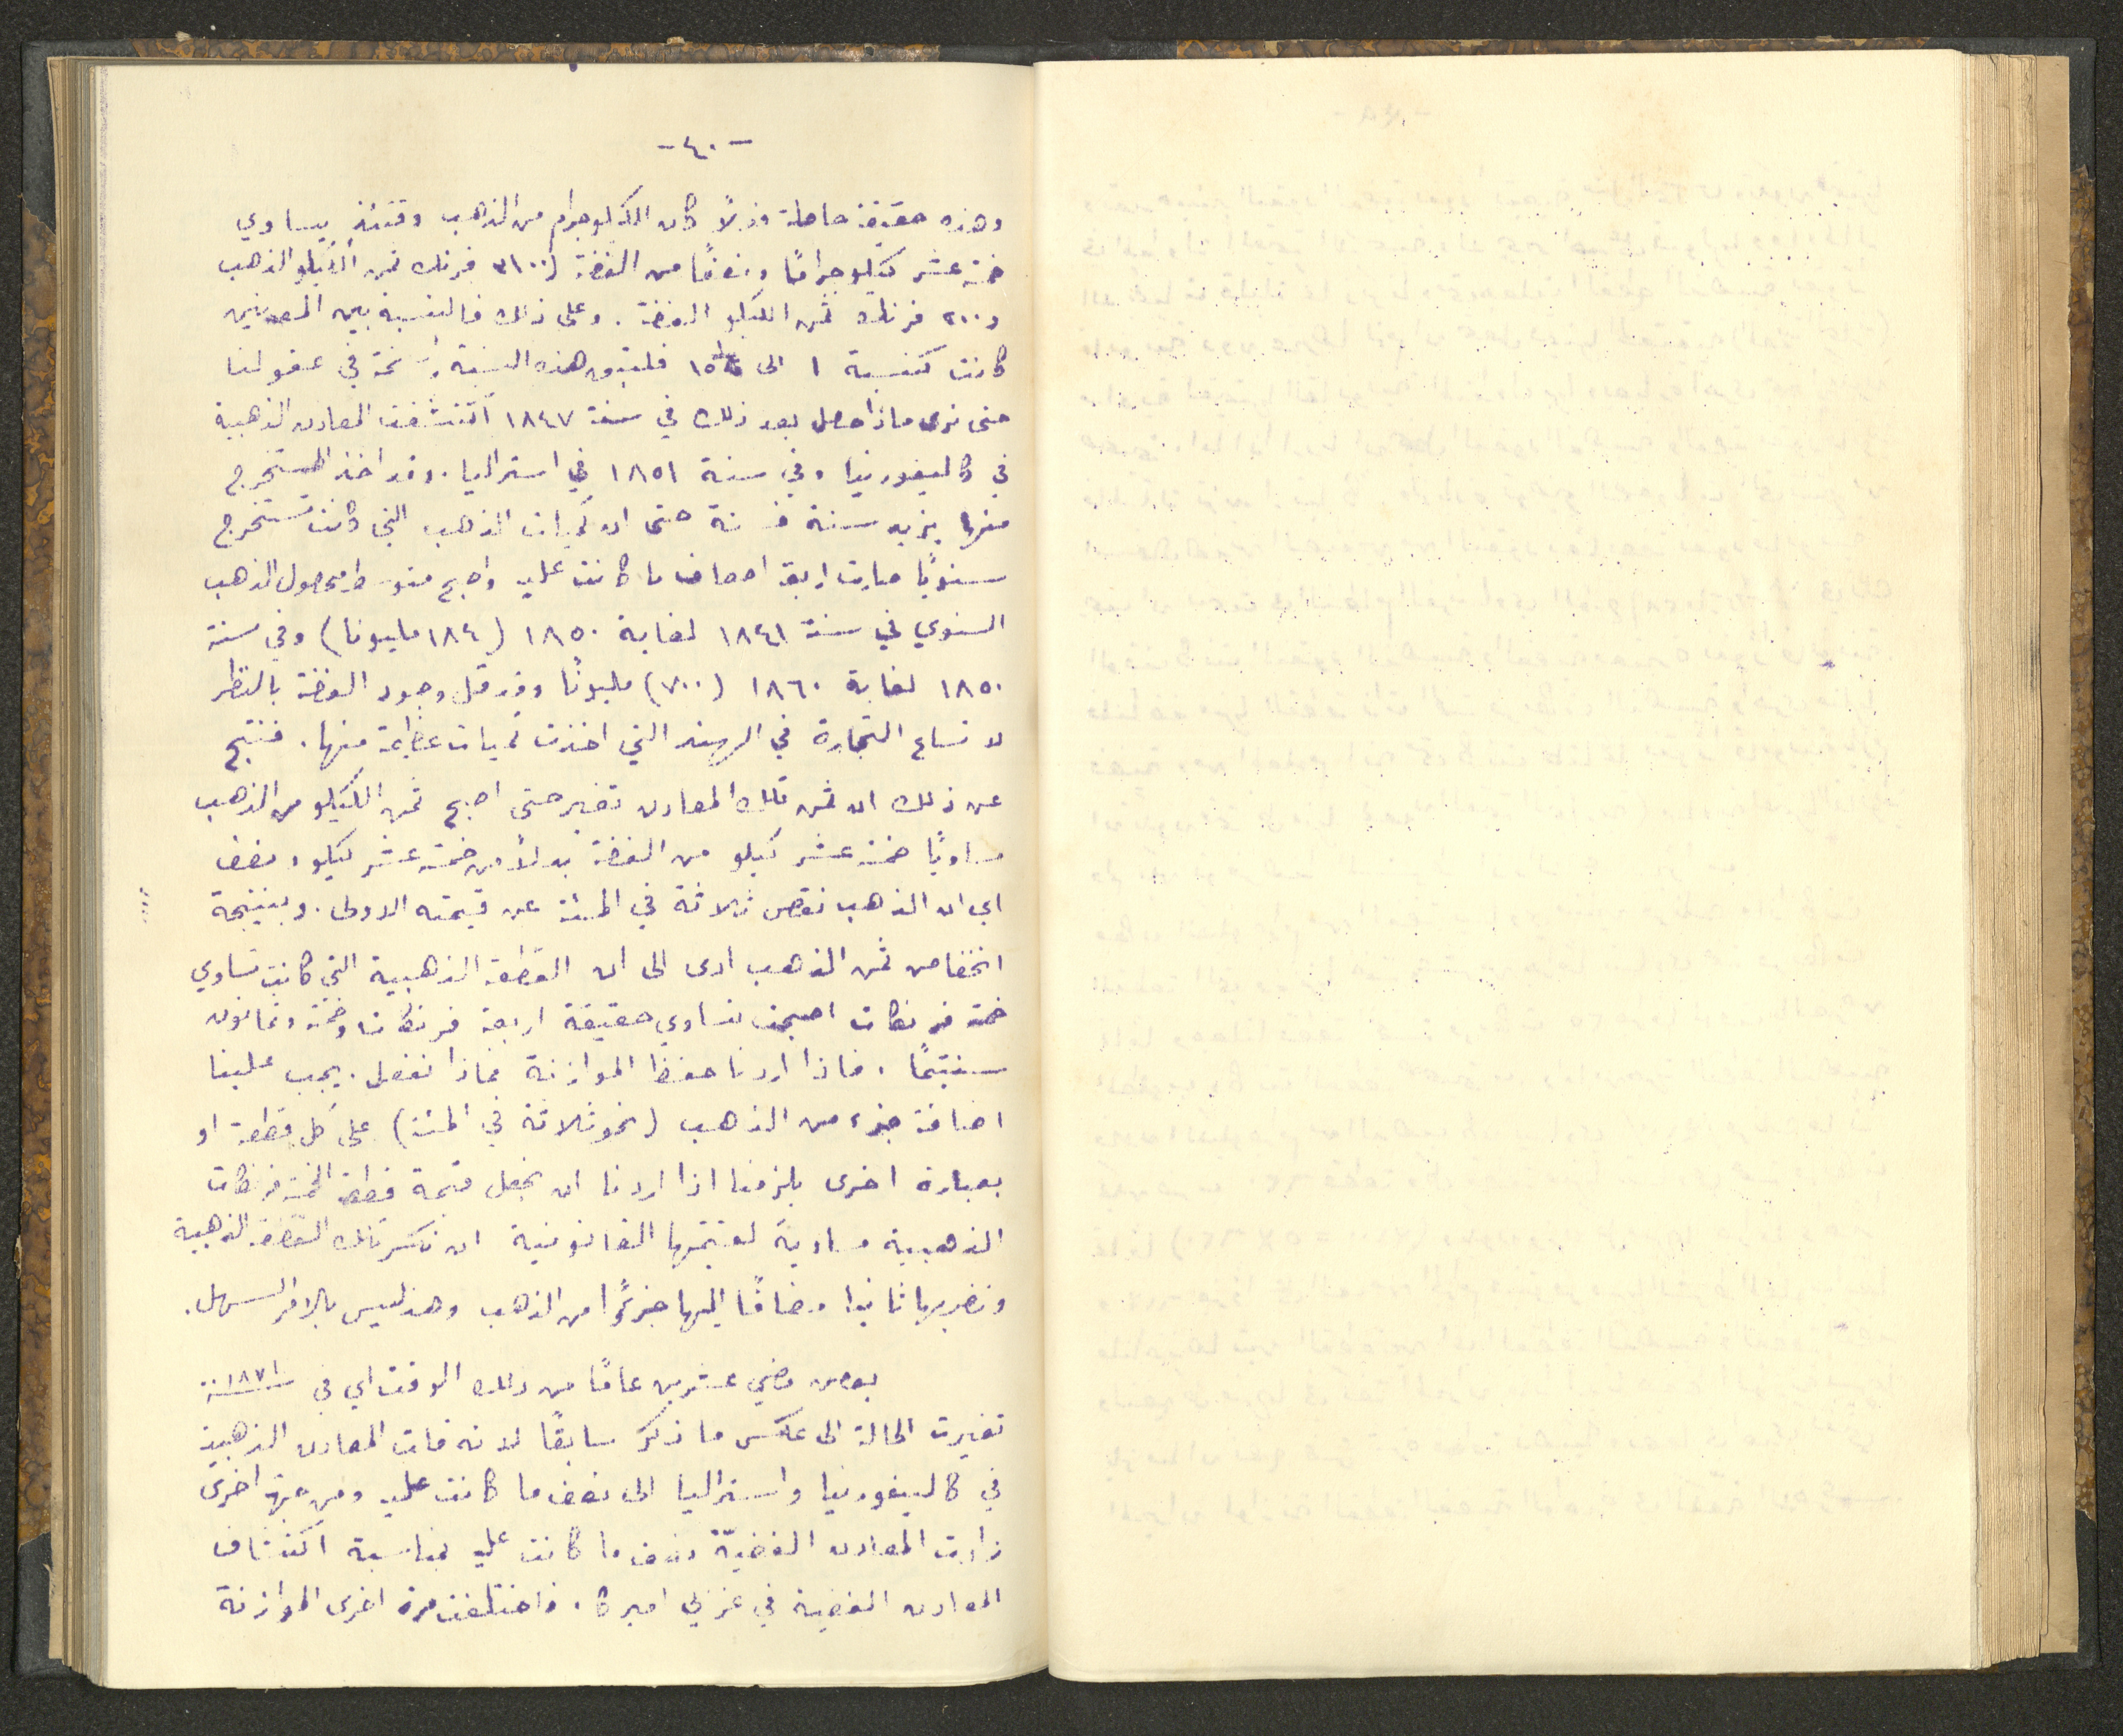 - ٤٠ -
وهذه حقيقة حاصلة فعلاً كان الكيلوجرام من الذهب وقتئذٍ يساوي
خمسة عشر كيلوجرامًا ونصفًا من الفضة (٣١٠٠ فرنك ثمن الكيلو الذهب
و ٢٠٠ فرنك ثمن الكيلو الفضة. وعلى ذلك فالنسبة بين المعدنين
كانت كنسبة ١ الى ١٥ فلتبق هذه النسبة راسخة في عقولنا
حتى نرى ماذا حصل بعد ذلك في سنة ١٨٤٧ اكتشفت المعادن الذهبية
في كاليفورنيا وفي سنة ١٨٥١ في استراليا. وقد اخذ المستخرج
منها يزيد سنة فسنة حتى ان كميات الذهب التي كانت تستخرج
سنويًا صارت اربعة اضعاف ما كانت عليه واصبح متوسط محصول الذهب
السنوي في سنة ١٨٤١ لغاية ١٨٥٠ (١٨٤ مليونا) وفي سنة
١٨٥٠ لغاية ١٨٦٠ (٧٠٠) مليونًا وقد قل وجود الفضة بالنظر
لاتساع التجارة في الهند التي اخذت كميات عظيمة منها. فنتج
عن ذلك ان ثمن تلك المعادن تغير حتى اصبح ثمن الكيلو من الذهب
مساويًا خمسة عشر كيلو من الفضة بدلاً من خمسة عشر كيلو ونصف
اي ان الذهب نقص ثلاثة في المئة عن قيمته الاولى. وبنتيجة
انخفاض ثمن الذهب ادى الى ان القطعة الذهبية التي كانت تساوي
خمسة فرنكات اصبحت تساوي حقيقة اربعة فرنكات وخمسة وثمانون
سنتيمًا. فاذا اردنا حفظ الموازنة فماذا نفعل. يجب علينا
اضافة جزء من الذهب (نحو ثلاثة في المئة) على كل قطعة او
بعبارة اخرى يلزمنا اذا اردنا ان نجعل قيمة قطعة الخمسة فرنكات
الذهبية مساوية لقيمتها القانونية ان نكسر تلك القطعة الذهبية
ونضربها ثانيا مضافًا اليها جزءًا من الذهب وهذا ليس بالامر السهل.
بعد مضي عشرين عامًا من ذلك الوقت اي في سنة ١٨٧١
تغيرت الحالة الى عكس ما ذكر سابقًا لانه قلت المعادن الذهبية
في كاليفورنيا واستراليا الى نصف ما كانت عليه ومن جهة اخرى
زادت المعادن الفضيّة ضعف ما كانت عليه بمناسبة اكتشاف
المعادن الفضية في غربي اميركا. فاختلفت مرة اخرى الموازنة